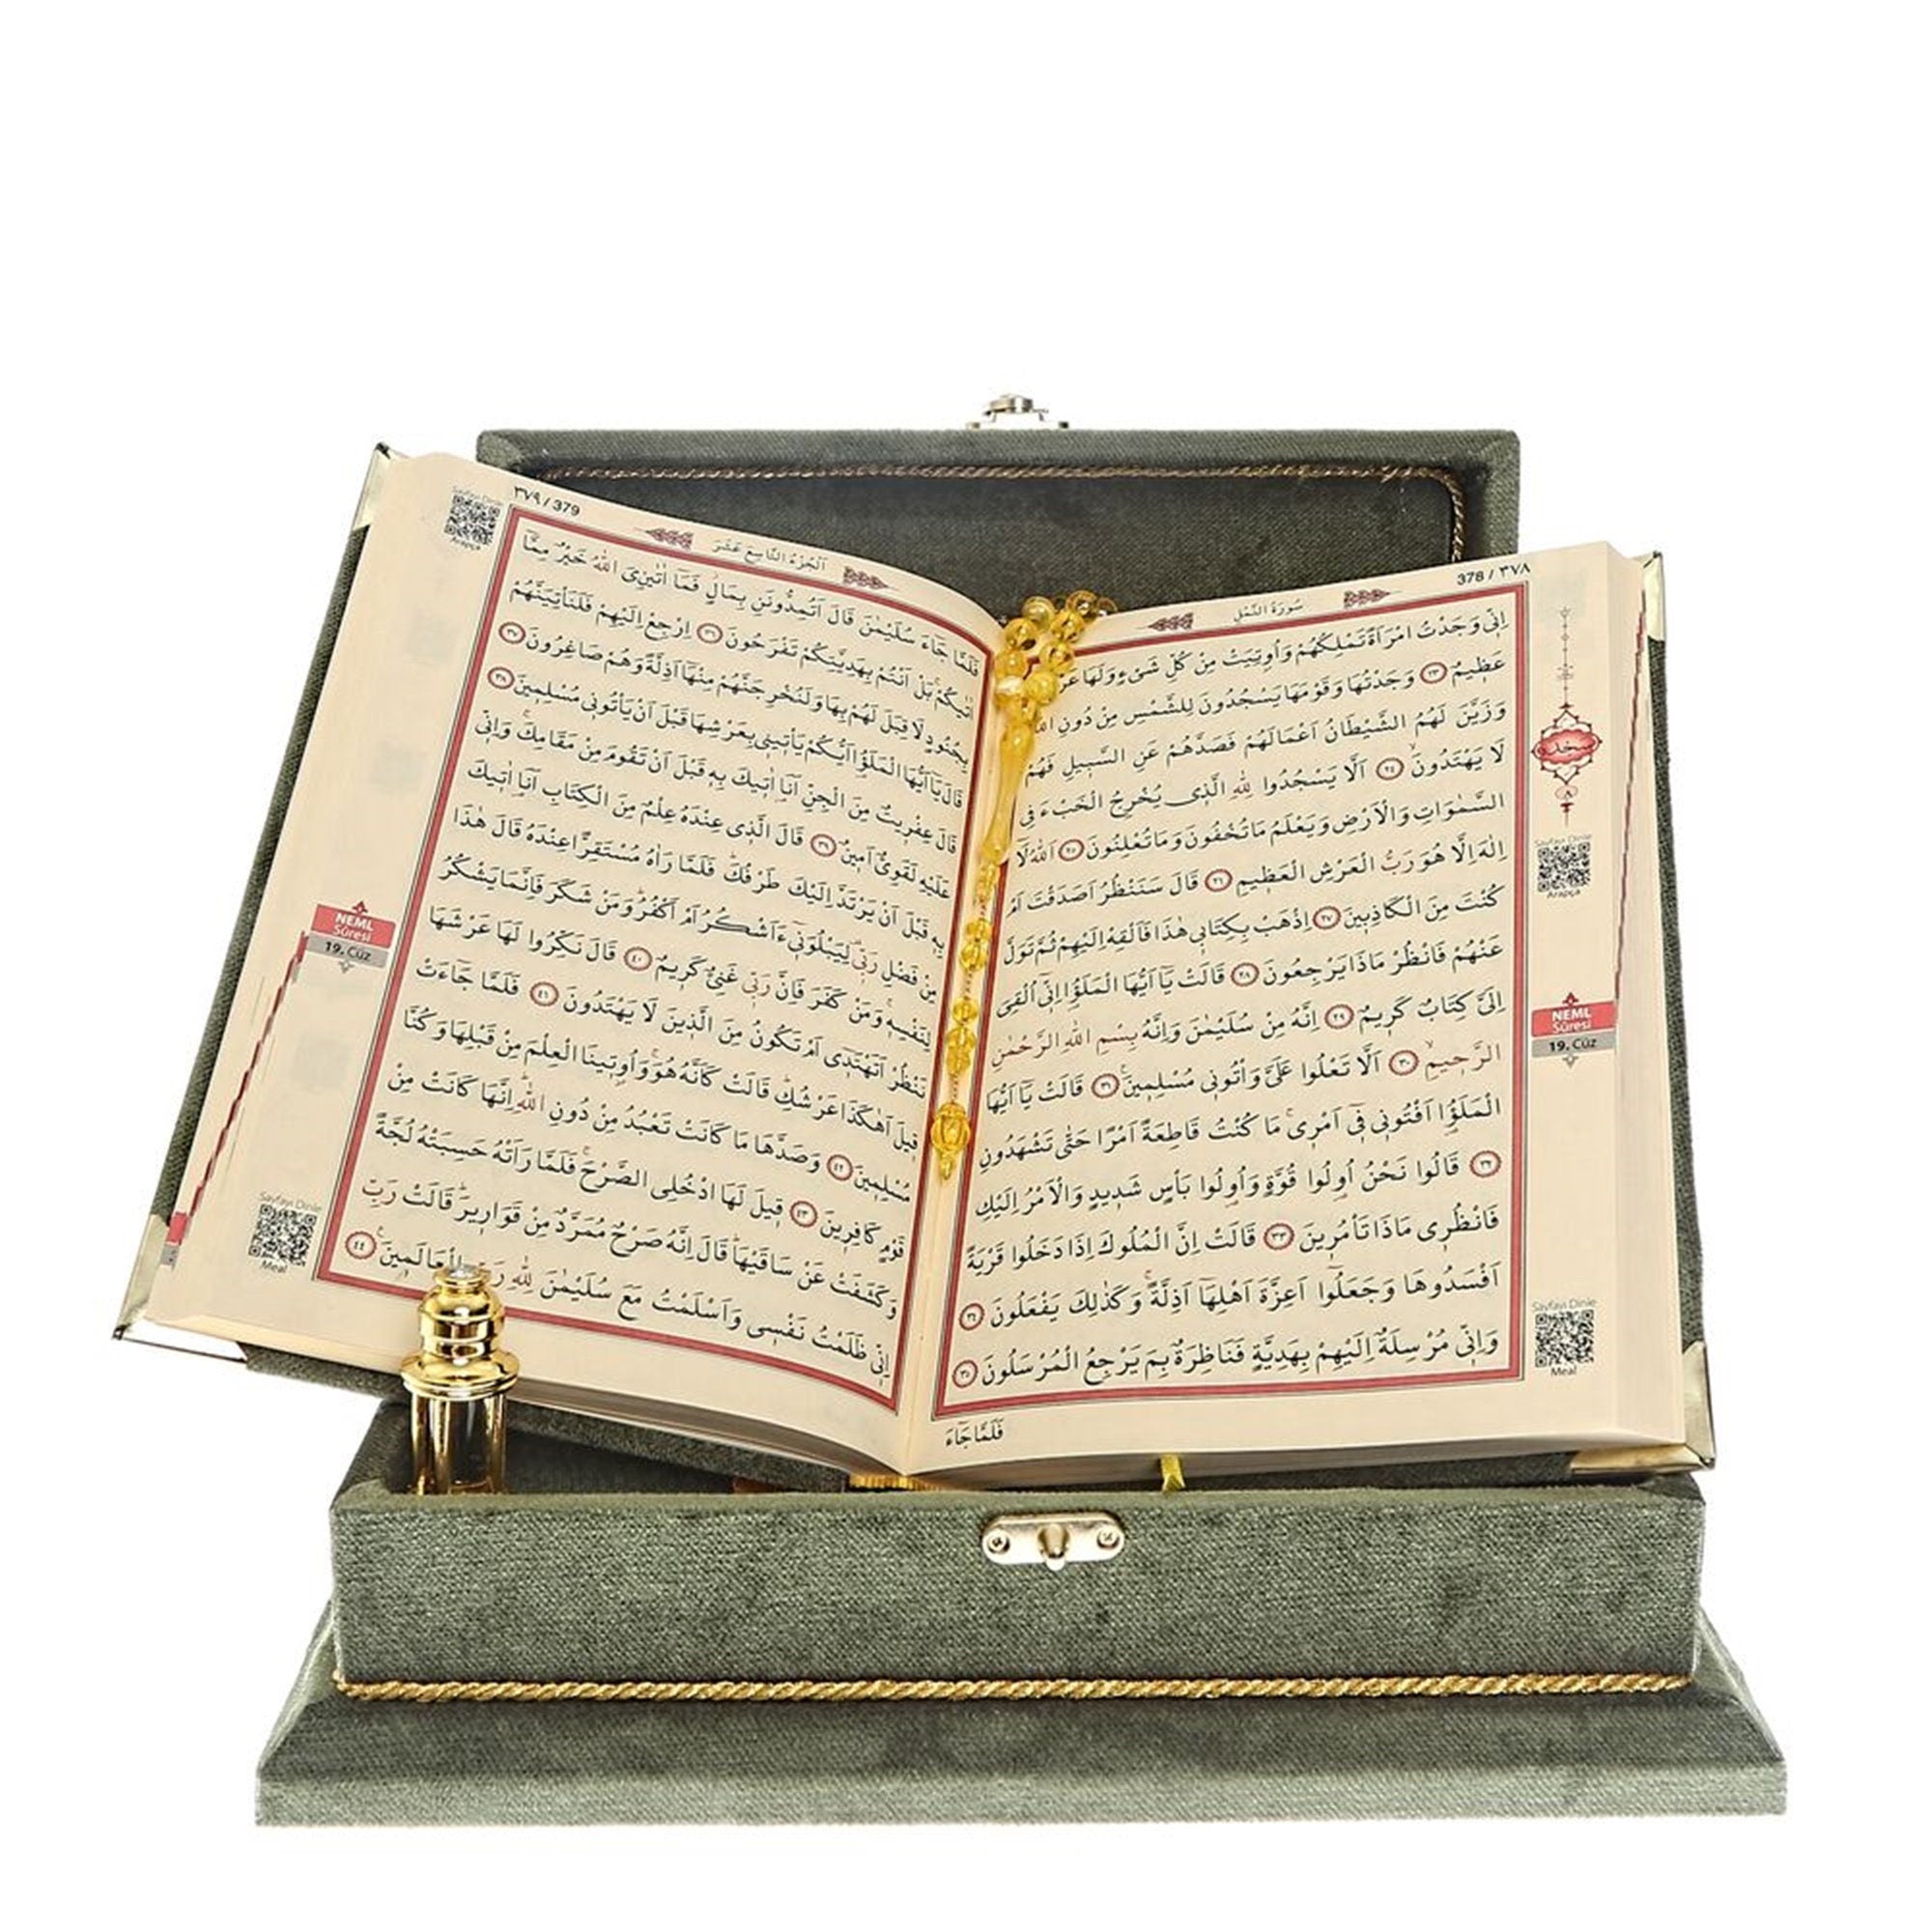 378 / ٣٧٨
سُورَةُ النَّمْلِ
اِنّ۪ي وَجَدْتُ امْرَاَةً تَمْلِكُهُمْ وَاُو۫تِيَتْ مِنْ كُلِّ شَيْءٍ وَلَهَا
عَظ۪يمٌ ﴿٢٣﴾ وَجَدْتُهَا وَقَوْمَهَا يَسْجُدُونَ لِلشَّمْسِ مِنْ دُونِ
وَزَيَّنَ لَهُمُ الشَّيْطَانُ اَعْمَالَهُمْ فَصَدَّهُمْ عَنِ السَّب۪يلِ فَهُمْ
لَا يَهْتَدُونَۙ ﴿٢٤﴾ اَلَّا يَسْجُدُوا لِلّٰهِ الَّذ۪ي يُخْرِجُ الْخَبْءَ فِي
السَّمٰوَاتِ وَالْاَرْضِ وَيَعْلَمُ مَا تُخْفُونَ وَمَا تُعْلِنُونَ ﴿٢٥﴾ اَللّٰهُ لَٓا
اِلٰهَ اِلَّا هُوَ رَبُّ الْعَرْشِ الْعَظ۪يمِ ﴿٢٦﴾ قَالَ سَنَنْظُرُ اَصَدَقْتَ اَمْ
كُنْتَ مِنَ الْكَاذِب۪ينَ ﴿٢٧﴾ اِذْهَبْ بِكِتَاب۪ي هٰذَا فَاَلْقِهْ اِلَيْهِمْ ثُمَّ تَوَلَّ
عَنْهُمْ فَانْظُرْ مَاذَا يَرْجِعُونَ ﴿٢٨﴾ قَالَتْ يَٓا اَيُّهَا الْمَلَؤُ۬ا اِنّ۪ٓي اُلْقِيَ
اِلَيَّ كِتَابٌ كَر۪يمٌ ﴿٢٩﴾ اِنَّهُ مِنْ سُلَيْمٰنَ وَاِنَّهُ بِسْمِ اللّٰهِ الرَّحْمٰنِ
الرَّح۪يمِۙ ﴿٣٠﴾ اَلَّا تَعْلُوا عَلَيَّ وَأْتُون۪ي مُسْلِم۪ينَ۟ ﴿٣١﴾ قَالَتْ يَٓا اَيُّهَا
الْمَلَؤُ۬ا اَفْتُون۪ي ف۪ٓي اَمْر۪يۚ مَا كُنْتُ قَاطِعَةً اَمْرًا حَتّٰى تَشْهَدُونِ
﴿٣٢﴾ قَالُوا نَحْنُ اُو۬لُوا قُوَّةٍ وَاُو۬لُوا بَأْسٍ شَد۪يدٍ وَالْاَمْرُ اِلَيْكِ
فَانْظُر۪ي مَاذَا تَأْمُر۪ينَ ﴿٣٣﴾ قَالَتْ اِنَّ الْمُلُوكَ اِذَا دَخَلُوا قَرْيَةً
اَفْسَدُوهَا وَجَعَلُٓوا اَعِزَّةَ اَهْلِهَٓا اَذِلَّةًۚ وَكَذٰلِكَ يَفْعَلُونَ ﴿٣٤﴾
وَاِنّ۪ي مُرْسِلَةٌ اِلَيْهِمْ بِهَدِيَّةٍ فَنَاظِرَةٌ بِمَ يَرْجِعُ الْمُرْسَلُونَ ﴿٣٥﴾
فَلَمَّا جَٓاءَ
سجده
٨
Sayfayı Dinle
Arapça
NEML
Sûresi
19. Cüz
Sayfayı Dinle
Meal
٣٧٩ / 379
اَلْجُزْءُ التَّاسِعَ عَشَرَ
فَلَمَّا جَٓاءَ سُلَيْمٰنَ قَالَ اَتُمِدُّونَنِ بِمَالٍۘ فَمَٓا اٰتٰينِيَ اللّٰهُ خَيْرٌ مِمَّٓا
اٰتٰيكُمْۚ بَلْ اَنْتُمْ بِهَدِيَّتِكُمْ تَفْرَحُونَ ﴿٣٦﴾ اِرْجِعْ اِلَيْهِمْ فَلَنَأْتِيَنَّهُمْ
بِجُنُودٍ لَا قِبَلَ لَهُمْ بِهَا وَلَنُخْرِجَنَّهُمْ مِنْهَٓا اَذِلَّةً وَهُمْ صَاغِرُونَ ﴿٣٧﴾
قَالَ يَٓا اَيُّهَا الْمَلَؤُ۬ا اَيُّكُمْ يَأْت۪ين۪ي بِعَرْشِهَا قَبْلَ اَنْ يَأْتُون۪ي مُسْلِم۪ينَ ﴿٣٨﴾
قَالَ عِفْر۪يتٌ مِنَ الْجِنِّ اَنَا۬ اٰت۪يكَ بِه۪ قَبْلَ اَنْ تَقُومَ مِنْ مَقَامِكَۚ وَاِنّ۪ي
عَلَيْهِ لَقَوِيٌّ اَم۪ينٌ ﴿٣٩﴾ قَالَ الَّذ۪ي عِنْدَهُ عِلْمٌ مِنَ الْكِتَابِ اَنَا۬ اٰت۪يكَ
بِه۪ قَبْلَ اَنْ يَرْتَدَّ اِلَيْكَ طَرْفُكَۜ فَلَمَّا رَاٰهُ مُسْتَقِرًّا عِنْدَهُ قَالَ هٰذَا
مِنْ فَضْلِ رَبّ۪ي لِيَبْلُوَن۪ٓي ءَاَشْكُرُ اَمْ اَكْفُرُۜ وَمَنْ شَكَرَ فَاِنَّمَا يَشْكُرُ
لِنَفْسِه۪ۚ وَمَنْ كَفَرَ فَاِنَّ رَبّ۪ي غَنِيٌّ كَر۪يمٌ ﴿٤٠﴾ قَالَ نَكِّرُوا لَهَا عَرْشَهَا
نَنْظُرْ اَتَهْتَد۪ٓي اَمْ تَكُونُ مِنَ الَّذ۪ينَ لَا يَهْتَدُونَ ﴿٤١﴾ فَلَمَّا جَٓاءَتْ
ق۪يلَ اَهٰكَذَا عَرْشُكِۜ قَالَتْ كَاَنَّهُ هُوَۚ وَاُو۫ت۪ينَا الْعِلْمَ مِنْ قَبْلِهَا وَكُنَّا
مُسْلِم۪ينَ ﴿٤٢﴾ وَصَدَّهَا مَا كَانَتْ تَعْبُدُ مِنْ دُونِ اللّٰهِۜ اِنَّهَا كَانَتْ مِنْ
قَوْمٍ كَافِر۪ينَ ﴿٤٣﴾ ق۪يلَ لَهَا ادْخُلِي الصَّرْحَۚ فَلَمَّا رَاَتْهُ حَسِبَتْهُ لُجَّةً
وَكَشَفَتْ عَنْ سَاقَيْهَاۜ قَالَ اِنَّهُ صَرْحٌ مُمَرَّدٌ مِنْ قَوَار۪يرَۜ قَالَتْ رَبِّ
اِنّ۪ي ظَلَمْتُ نَفْس۪ي وَاَسْلَمْتُ مَعَ سُلَيْمٰنَ لِلّٰهِ رَبِّ الْعَالَم۪ينَ۟ ﴿٤٤﴾
Sayfayı Dinle
Arapça
NEML
Sûresi
19. Cüz
Sayfayı Dinle
Meal